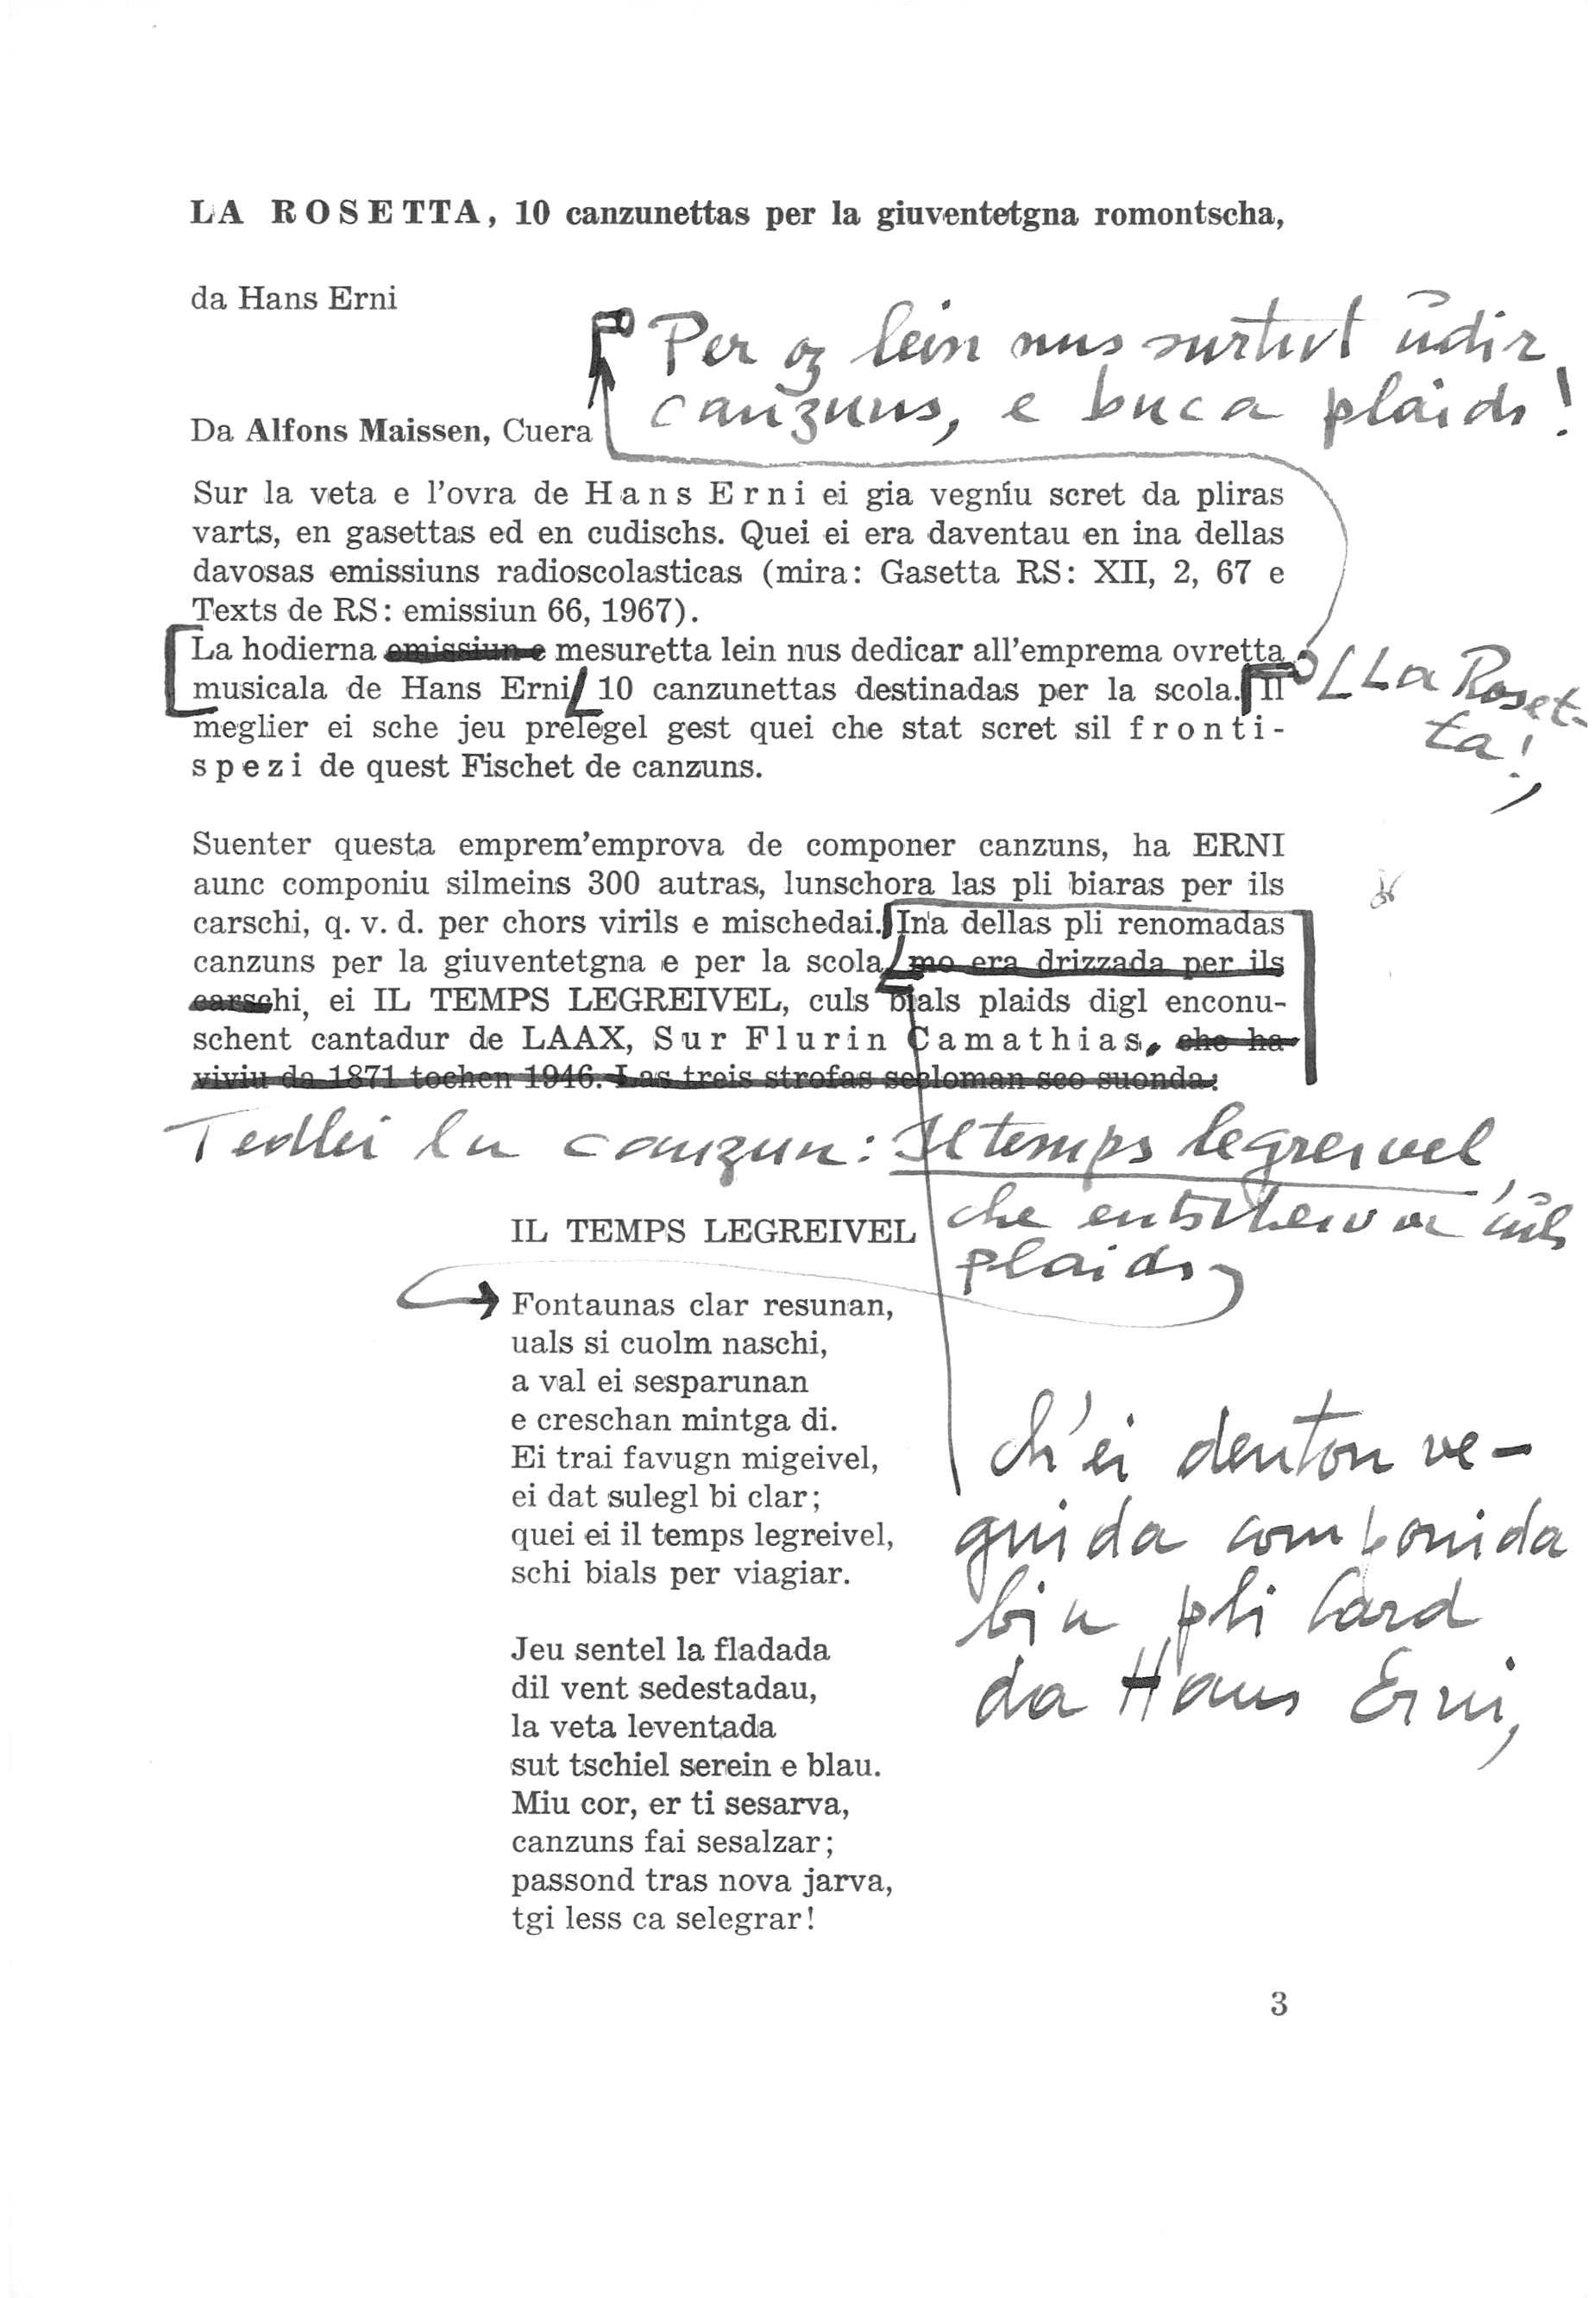 LA ROSETTA, 10 canzunettas per la giuventetgna romontscha,
da Hans Erni
Per oz lein nus surtut udir
canzuns, e buca plaids!
Da Alfons Maissen, Cuera
Sur la veta e l'ovra de Hans Erni ei gia vegniu scret da pliras
varts, en gasettas ed en cudischs. Quei ei era daventau en ina dellas
davosas emissiuns radioscolasticas (mira: Gasetta RS: XII, 2, 67 e
Texts de RS: emissiun 66, 1967).
La hodierna emissiun e mesuretta lein nus dedicar all'emprema ovretta
musicala de Hans Erni 10 canzunettas destinadas per la scola. Il
La Roset-
ta!,
meglier ei sche jeu prelegel gest quei che stat scret sil fronti-
spezi de quest Fischet de canzuns.
Suenter questa emprem'emprova de componer canzuns, ha ERNI
aunc componiu silmeins 300 autras, lunschora las pli biaras per ils
carschi, q. v. d. per chors virils e mischedai. Ina dellas pli renomadas
canzuns per la giuventetgna e per la scola mo era drizzada per ils
carschi, ei IL TEMPS LEGREIVEL, culs bials plaids digl enconu-
schent cantadur de LAAX, Sur Flurin Camathias, che ha
viviu da 1871 tochen 1946. Las treis strofas secloman sco suonda:
Tedlei la canzun: Il temps legreivel,
che entscheiva culs
plaids
IL TEMPS LEGREIVEL
Fontaunas clar resunan,
uals si cuolm naschi,
a val ei sesparunan
e creschan mintga di.
Ei trai favugn migeivel,
ei dat sulegl bi clar;
quei ei il temps legreivel,
schi bials per viagiar.
ch'ei denton ve-
gnida componida
bia pli tard
da Hans Erni,
Jeu sentel la fladada
dil vent sedestadau,
la veta leventada
sut tschiel serein e blau.
Miu cor, er ti sesarva,
canzuns fai sesalzar;
passond tras nova jarva,
tgi less ca selegrar!
3